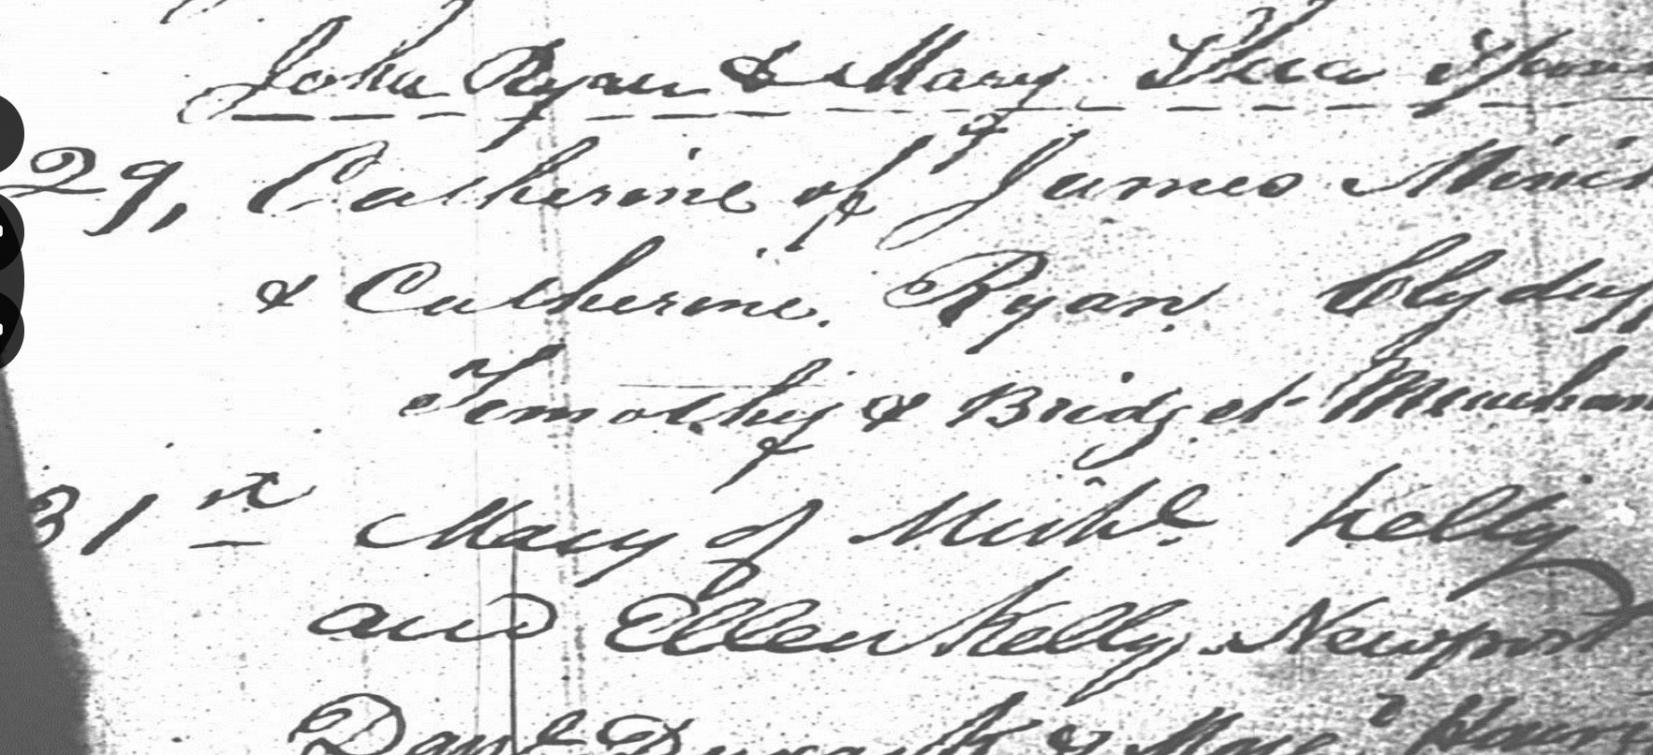 John Ryan & Mary Shea Spon
29, Catherine of James Mini
& Catherine Ryan Clyduff
Timothy & Bridget
31st Mary of Michl Kelly
and Ellen Kelly Newport
Danl & Mary